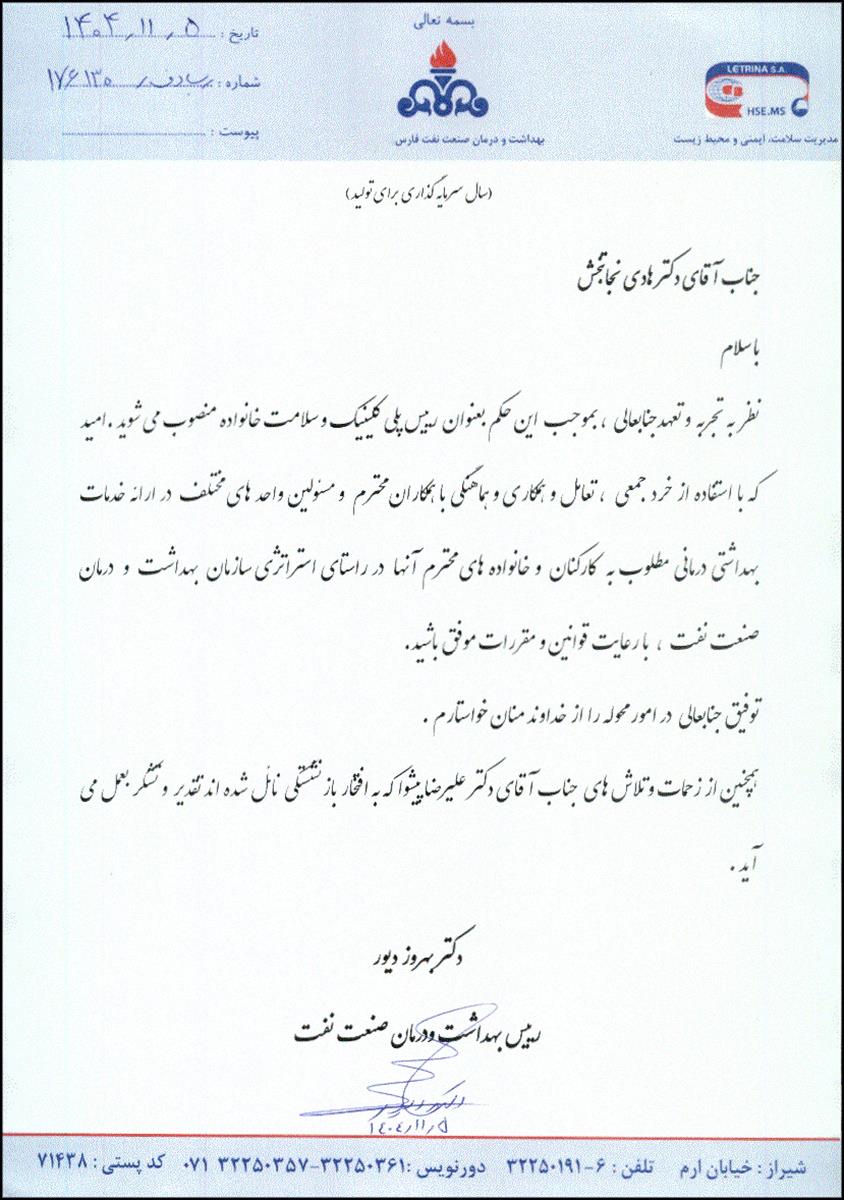 بسمه تعالی
تاریخ : ۱۴۰۴٫۱۱٫۵
شماره : ۱۷۶۱۳۰
پیوست :
بهداشت و درمان صنعت نفت فارس
LETRINA S.A.
HSE.MS
مدیریت سلامت، ایمنی و محیط زیست
(سال سرمایه گذاری برای تولید)
جناب آقای دکتر هادی نجاتبخش
با سلام
نظر به تجربه و تعهد جنابعالی ، بموجب این حکم بعنوان رییس پلی کلینیک و سلامت خانواده منصوب می شوید . امید
که با استفاده از خرد جمعی ، تعامل و همکاری و هماهنگی با همکاران محترم و مسئولین واحد های مختلف در ارائه خدمات
بهداشتی درمانی مطلوب به کارکنان و خانواده های محترم آنها در راستای استراتژی سازمان بهداشت و درمان
صنعت نفت ، با رعایت قوانین و مقررات موفق باشید.
توفیق جنابعالی در امور محوله را از خداوند منان خواستارم .
همچنین از زحمات و تلاش های جناب آقای دکتر علیرضا پیشوا که به افتخار بازنشستگی نائل شده اند تقدیر و تشکر بعمل می
آید .
دکتر بهروز دیور
رییس بهداشت و درمان صنعت نفت
۱۴۰۴/۱۱/۵
شیراز : خیابان ارم تلفن : ۶-۳۲۲۵۰۱۹۱ دورنویس :۳۲۲۵۰۳۶۱-۳۲۲۵۰۳۵۷ ۰۷۱ کد پستی : ۷۱۴۳۸